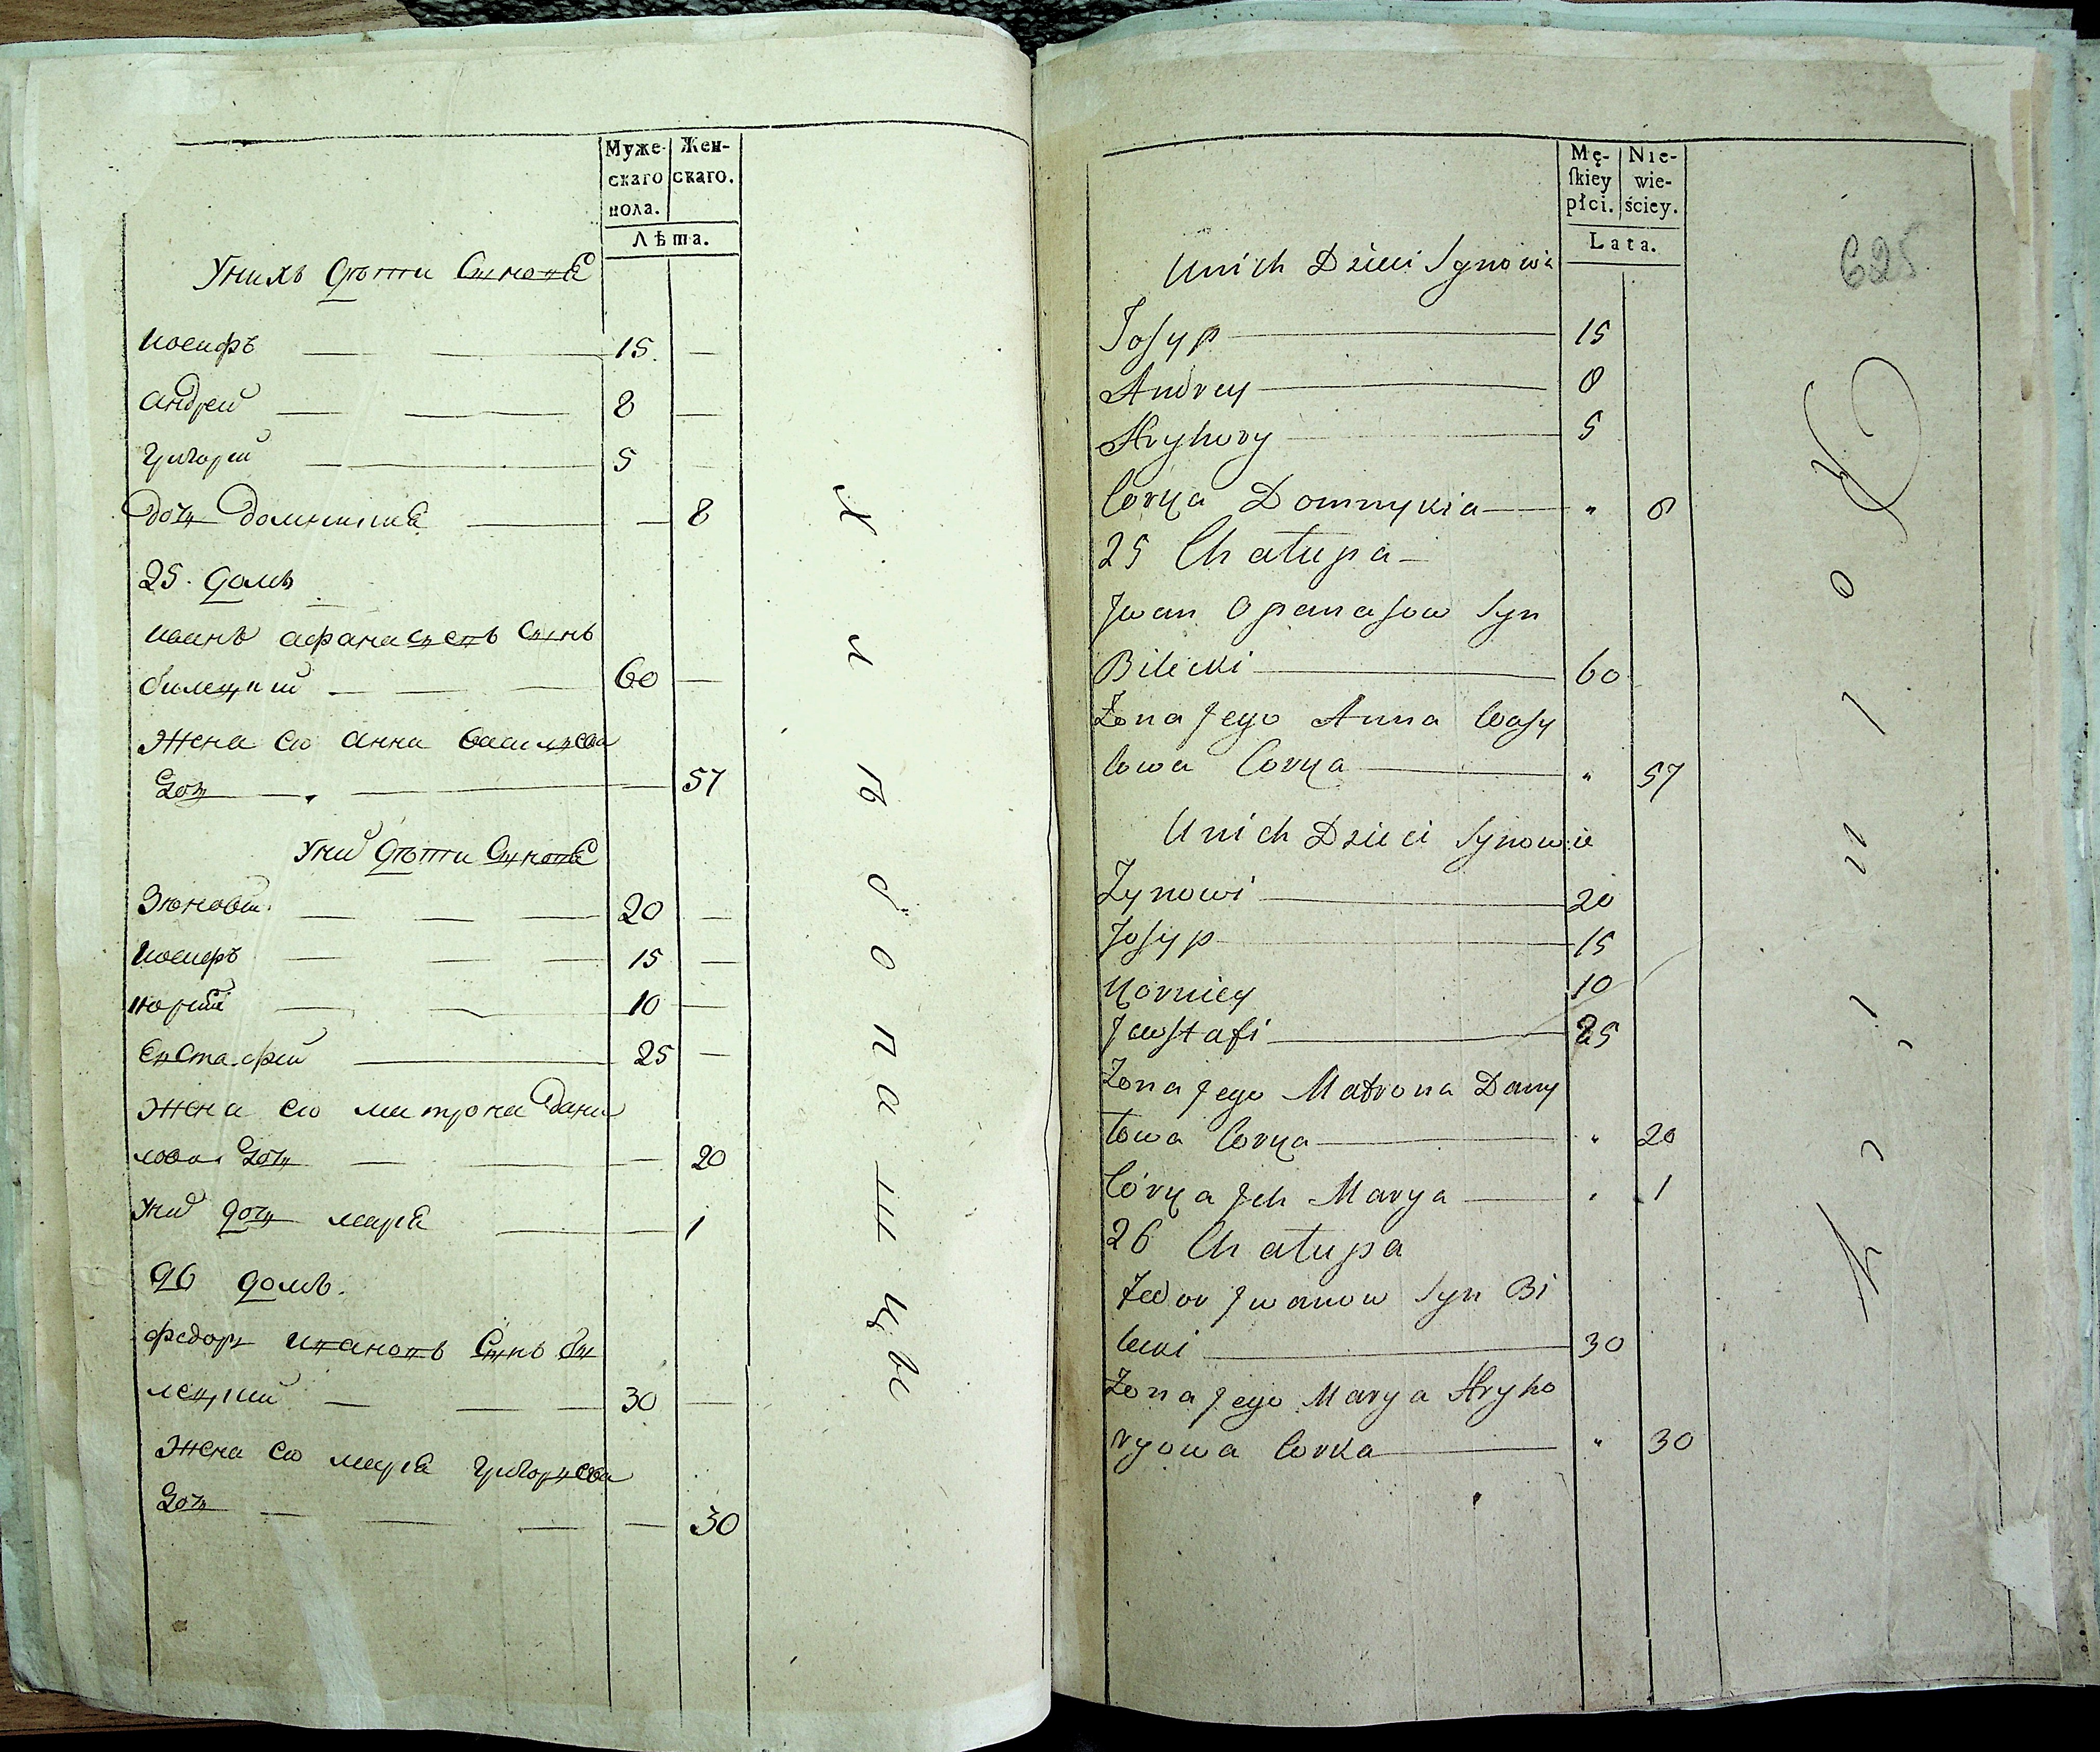 Муже-
скаго
пола.
Жен-
скаго.
Лѣта.
Унихъ дѣти Синове
Иосифъ 15
Андрей 8
Григорий 5
Дочь Домникия 8
25. домъ
Иванъ Афанасиевъ Синъ
Билецкий 60
Жена его Анна Василиева
Дочь 57
Унихъ дѣти Синове
Зѣновий 20
Иосифъ 15
10
Евстафий 25
Жена его Матрона Дани
лова Дочь 20
Унихъ дочь Мария 1
26 домъ.
Федоръ Ивановъ Синъ Би
лецкий 30
Жена его Мария Григориева
Дочь 30
Хлѣбопашцы
Mę-
ſkiey
płci.
Nie-
wie-
ściey.
Lata.
625
Unich Dzieci Synowie
Josyp 15
Andrey 8
Hryhory 5
Corka Domnykia " 8
25 Chałupa
Jwan Opanasow Syn
Bilecki 60
Żona Jego Anna Wasy
lowa Corka " 57
Unich Dzieci Synowie
Zynowi 20
Josyp 15
Korniey 10
Jewstafi 25
Żona Jego Matrona Dany
łowa Corka " 20
Córka Jch Marya " 1
26 Chałupa
Fedor Jwanow Syn Bi
lecki 30
Żona Jego Marya Hryho
ryowa Corka " 30